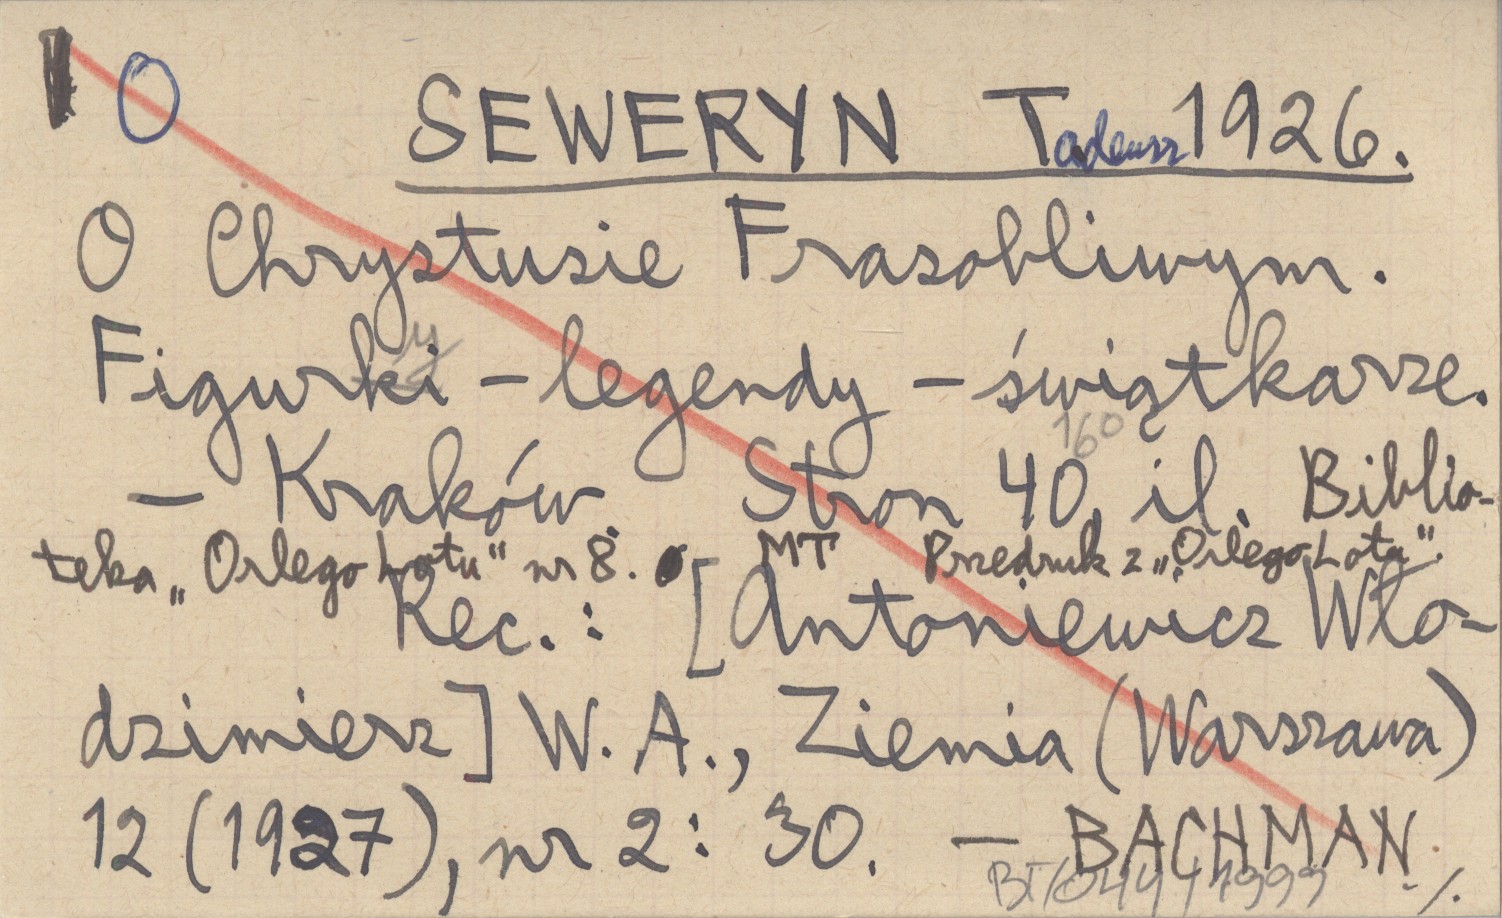 O SEWERYN Tadeusz 1926.
O Chrystusie Frasobliwym.
Figurki – legendy – świątkarze.
160
– Kraków Stron 40, il. Biblio-
teka „Orlego Lotu" nr 8. MT Przedruk z „Orlego Lotu".
Rec.: [Antoniewicz Wło-
dzimierz] W. A., Ziemia (Warszawa)
12 (1927), nr 2: 30. – BACHMAN
·/.